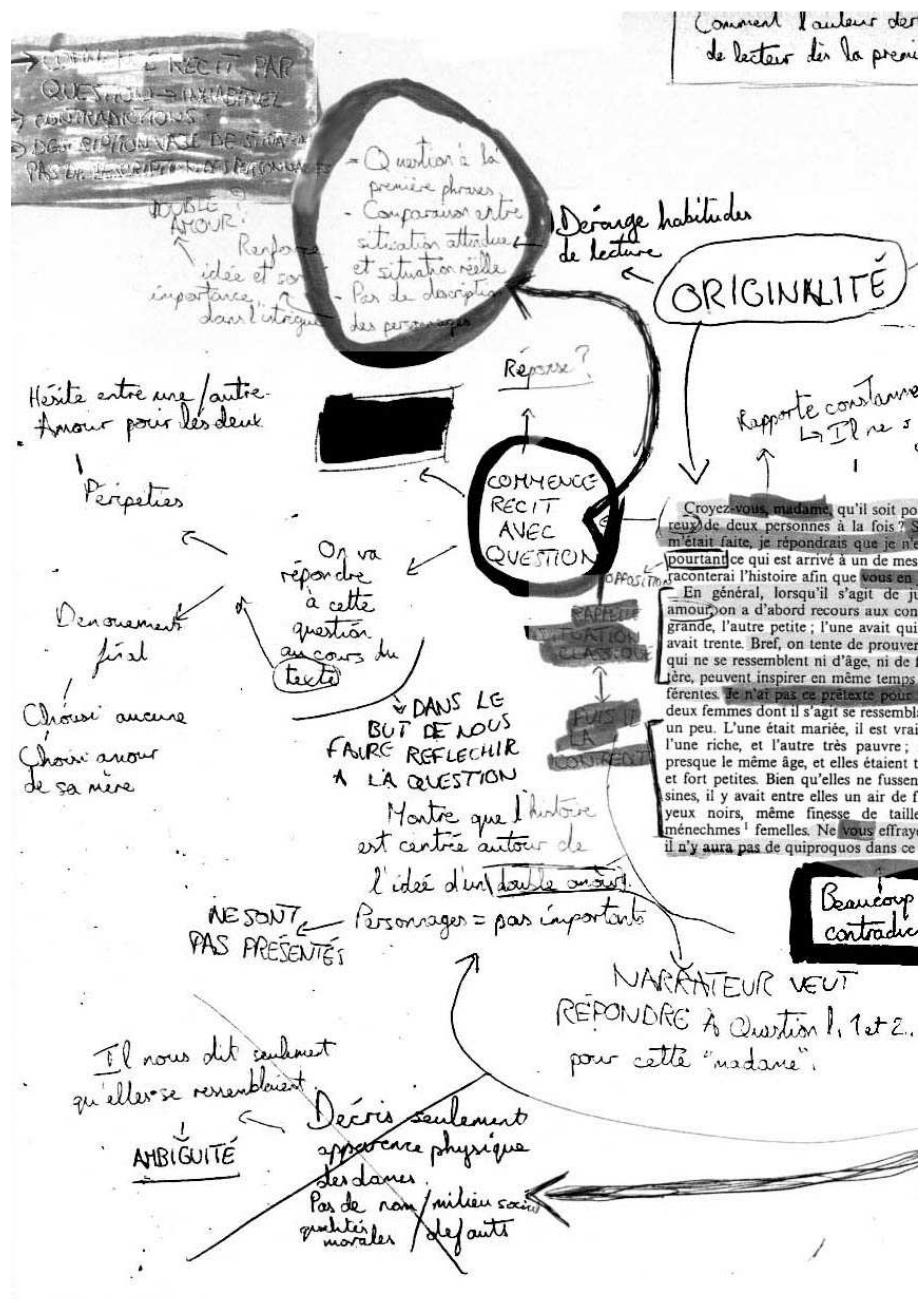 Comment l'auteur
de lecteur dès la
RECIT PAR
QUESTION → INHABITUEL
→ CONTRADICTIONS
PAS DE DESCRIPTION DES PERSONNAGES
DOUBLE
AMOUR ?
Renforce
idée et son
importance
dans l'intrigue
- Question à la
première phrases
- Comparaison entre
situation attendue
et situation réelle
- Pas de description
des personnages
Dérange habitudes
de lecture
ORIGINALITÉ
Réponse ?
Hésite entre une / autre
Amour pour les deux
Péripeties
COMMENCE
RECIT
AVEC
QUESTION
Rapporte
↳ Il ne
On va
répondre
à cette
question
au cours du
texte
Denouement
final
Choisi aucune
Choisi amour
de sa mère
OPPOSITION
RAPPELLE
SITUATION
CLASSIQUE
PUIS IL
LA
CONTREDIT
Croyez-vous, madame, qu'il soit
reux) de deux personnes à la fois ?
m'était faite, je répondrais que je
pourtant ce qui est arrivé à un de mes
raconterai l'histoire afin que vous en
En général, lorsqu'il s'agit de
amour, on a d'abord recours aux
grande, l'autre petite ; l'une avait
avait trente. Bref, on tente de prouver
qui ne se ressemblent ni d'âge, ni de
peuvent inspirer en même temps
Je n'ai pas ce prétexte pour
deux femmes dont il s'agit se
un peu. L'une était mariée, il est vrai
l'une riche, et l'autre très pauvre ;
presque le même âge, et elles étaient
et fort petites. Bien qu'elles ne
il y avait entre elles un air de
yeux noirs, même finesse de taille
ménechmes¹ femelles. Ne vous
il n'y aura pas de quiproquos dans ce
DANS LE
BUT DE NOUS
FAIRE REFLECHIR
A LA QUESTION
Montre que l'histoire
est centrée autour de
l'idée d'un double amour.
Personnages = pas importants
NE SONT
PAS PRÉSENTÉS
Beaucoup
NARRATEUR VEUT
RÉPONDRE À Question 1, 1 et 2..
pour cette "madame".
Il nous dit seulement
qu'elles se ressemblaient.
AMBIGUITÉ
Décris seulement
apparence physique
des dames.
Pas de nom / milieu social
qualités / defauts
morales